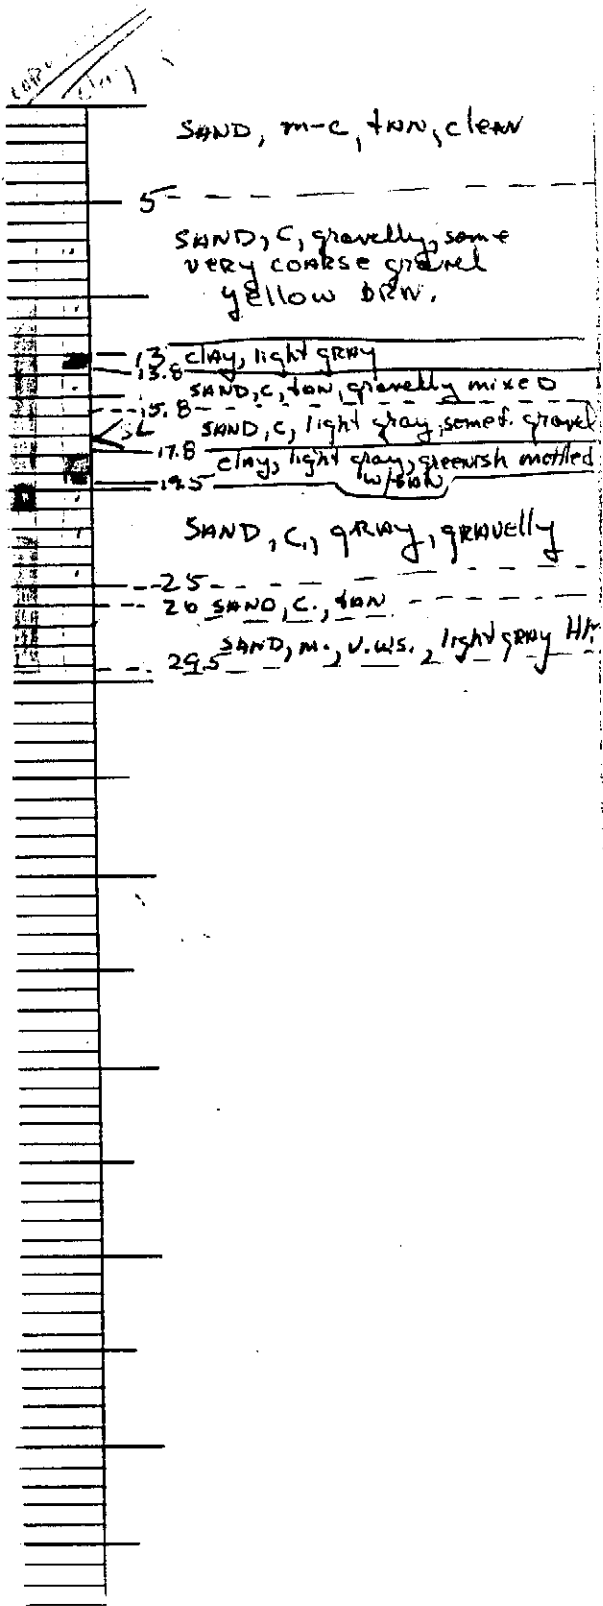 Clay
SAND, m-c, tan, clean
5
SAND, C, gravelly, some
very coarse gravel
yellow BRN.
13 clay, light gray
13.8
SAND, C, tan, gravelly mixed
15.8
SAND, C, light gray, some f. gravel
17.8
clay, light gray, greenish mottled
19.5 w/tan
SAND, C, gray, gravelly
25
26 SAND, C., tan
SAND, m., v.ws., light gray
29.5